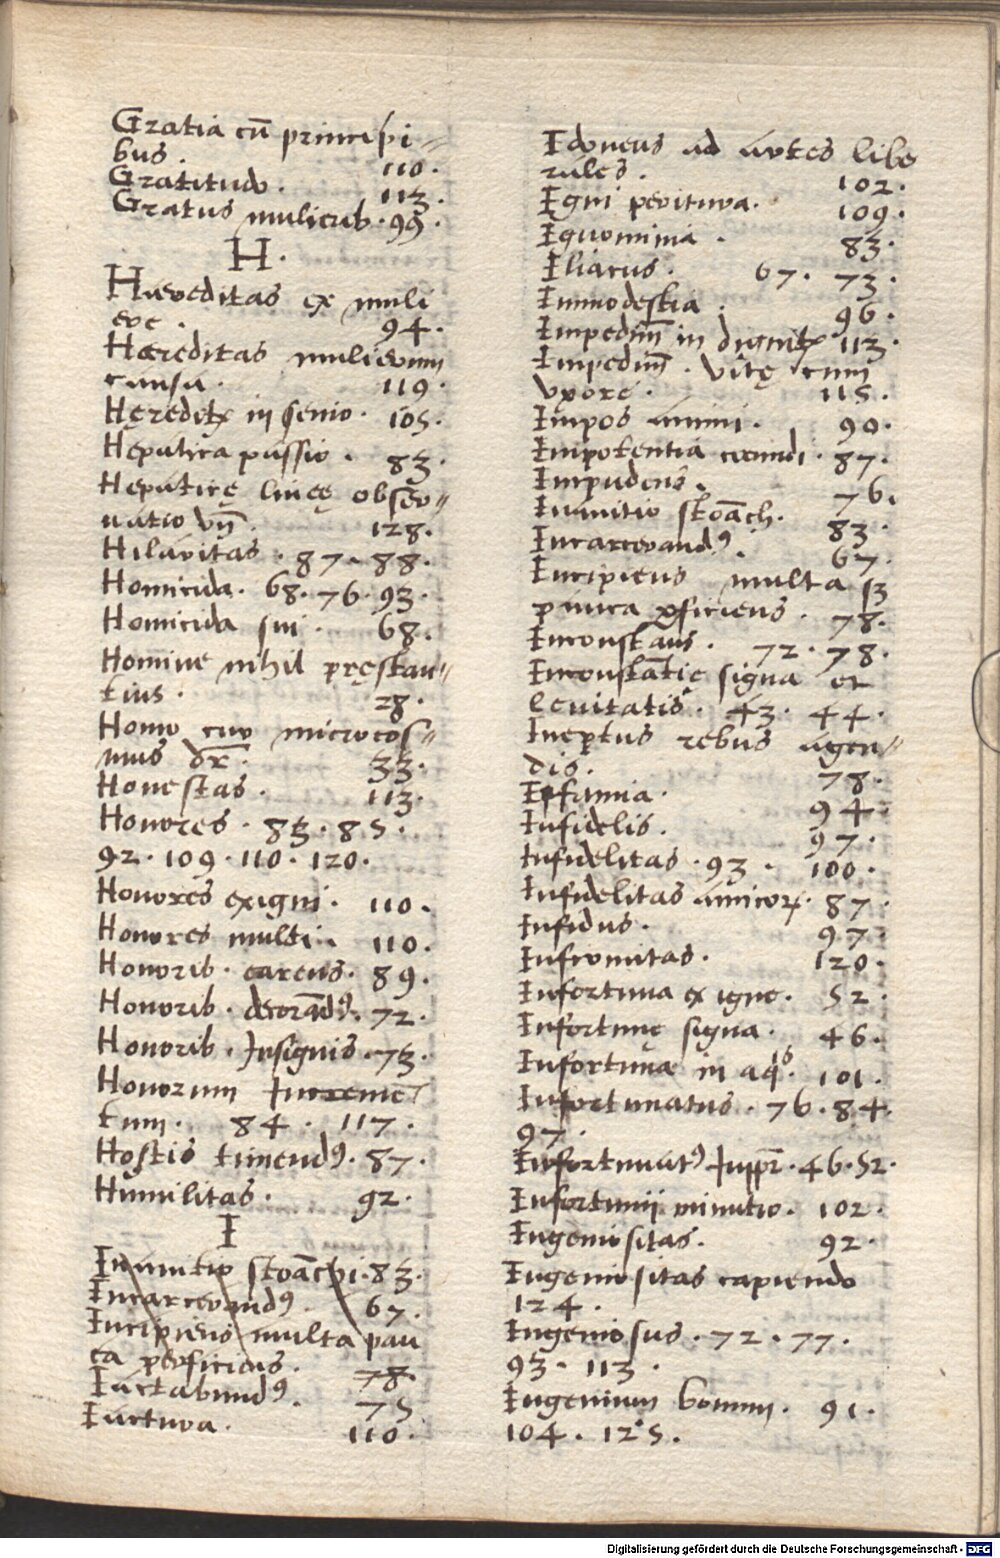 Gratia cū principi〃
bus . 110.
Gratitudo . 113.
Gratus mulierib. 99.
H.
Haereditas ex muli
ere . 94.
Haereditas mulierum
causa . 119.
Hęredetꝝ in senio . 105.
Hepatica passio . 83.
Hepaticę lineę obser〃
uatio vn̄. 128.
Hilaritas . 87. 88.
Homicida . 68. 76. 93.
Homicida sui . 68.
Homine nihil pręstan〃
tius . 28.
Homo cur microcos〃
mus dr̄. 33.
Honestas . 113.
Honores . 83. 85.
92. 109. 110. 120.
Honores exigui . 110.
Honores multi . 110.
Honorib. carens . 89.
Honorib. decorādꝰ. 72.
Honorib. Insignis . 73.
Honorum Incremē
tum . 84. 117.
Hostis timendꝰ. 87.
Humilitas . 92.
I
Inanitio stoāchi . 83.
Incarcerandꝰ. 67.
Incipiens multa pau
ca perficiens . 78.
Iactabundꝰ. 75
Iactura . 110.
Idoneus ad artes libe
rales . 102.
Igni peritura . 109.
Ignominia . 83.
Iliacus . 67. 73.
Immodestia . 96.
Impedim̄ in dignitꝝ 113.
Impedim̄ . vitę cum
vxore . 115.
Impos animi . 90.
Impotentia coeundi . 87.
Impudens . 76.
Inanitio stoāch. 83.
Incarcerandꝰ. 67.
Incipiens multa sꝫ
pauca ꝑficiens . 78.
Inconstans . 72. 78.
Inconstātię signa et
leuitatis . 43. 44.
Ineptus rebus agen〃
dis. 78.
Infamia . 94.
Infidelis . 97.
Infidelitas . 93. 100.
Infidelitas amicoꝝ. 87.
Infidus . 97.
Infirmitas . 120.
Infortuna ex igne . 52.
Infortunę signa . 46.
Infortunae in aqs. 101.
Infortunatus . 76. 84.
97.
Infortunatꝰ Impr̄. 46. 52.
Infortunij minutio . 102.
Ingeniositas . 92.
Ingeniositas capiendo
124.
Ingeniosus . 72. 77.
93. 113.
Ingenium bonum . 91.
104. 125.
Digitalisierung gefördert durch die Deutsche Forschungsgemeinschaft - DFG